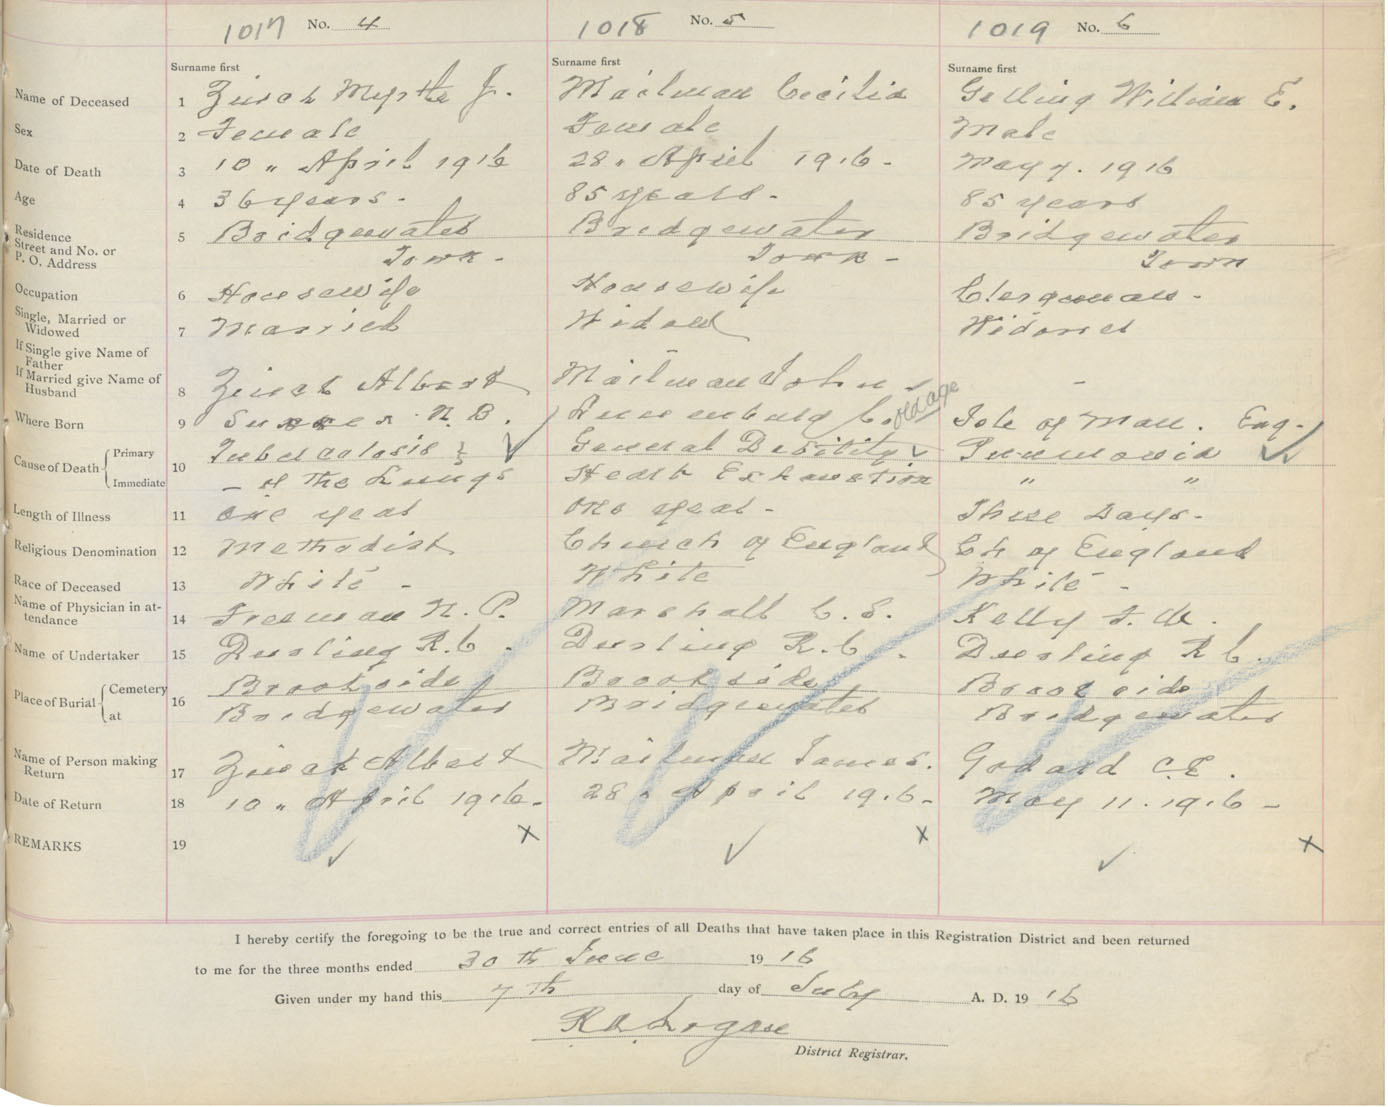 1017 No. 4 1018 No. 5 1019 No. 6
Surname first Surname first Surname first
Name of Deceased 1 Zinck Myrtle J. Mailman Cecilia Gelling William E.
Sex 2 Female Female Male
Date of Death 3 10 " April 1916 28 " April 1916 - May 7. 1916
Age 4 36 years - 85 years - 85 years
Residence
Street and No. or
P. O. Address 5 Bridgewater Bridgewater Bridgewater
Town - Town - Town
Occupation 6 Housewife Housewife Clergyman -
Single, Married or
Widowed 7 Married Widow Widowed
If Single give Name of
Father
If Married give Name of
Husband 8 Zinck Albert Mailman John -
old age
Where Born 9 Sussex N. B. Lunenburg Co. Isle of Man. Eng -
Cause of Death { Primary 10 Tuberculosis } General Debility Pneumonia
Immediate - of the Lungs Heart Exhaustion " "
Length of Illness 11 one year one year - Three Days -
Religious Denomination 12 Methodist Church of England Ch of England
Race of Deceased 13 White - White White -
Name of Physician in at-
tendance 14 Freeman N. P. Marshall C. S. Kelly F. W.
Name of Undertaker 15 Dursling R. C. Dursling R. C. Dursling R C.
Place of Burial { Cemetery 16 Brookside Brookside Brookside
at Bridgewater Bridgewater Bridgewater
Name of Person making
Return 17 Zinck Albert Mailman James. Godard C. E.
Date of Return 18 10 " April 1916 - 28 " April 1916 - May 11. 1916 -
REMARKS 19
I hereby certify the foregoing to be the true and correct entries of all Deaths that have taken place in this Registration District and been returned
to me for the three months ended 30 th June 19 16
Given under my hand this 7 th day of July A. D. 19 16
District Registrar.